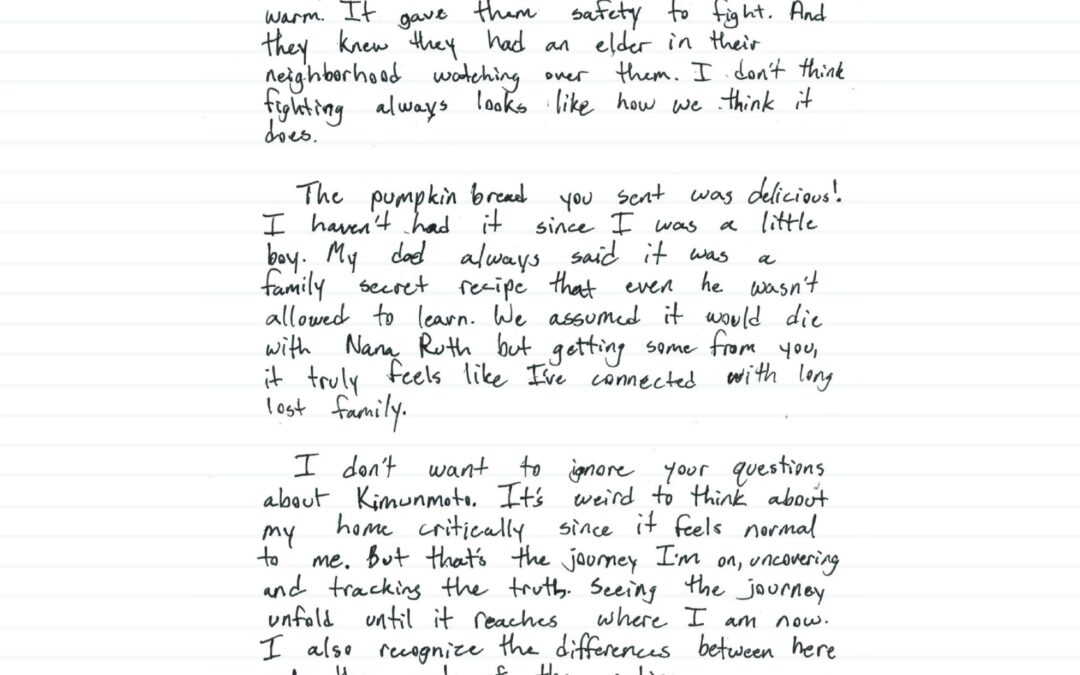 warm. It gave them safety to fight. And
they knew they had an elder in their
neighborhood watching over them. I don't think
fighting always looks like how we think it
does.
The pumpkin bread you sent was delicious!
I haven't had it since I was a little
boy. My dad always said it was a
family secret recipe that even he wasn't
allowed to learn. We assumed it would die
with Nana Ruth but getting some from you,
it truly feels like I've connected with long
lost family.
I don't want to ignore your questions
about Kimunmoto. It's weird to think about
my home critically since it feels normal
to me. But that's the journey I'm on, uncovering
and tracking the truth. Seeing the journey
unfold until it reaches where I am now.
I also recognize the differences between here